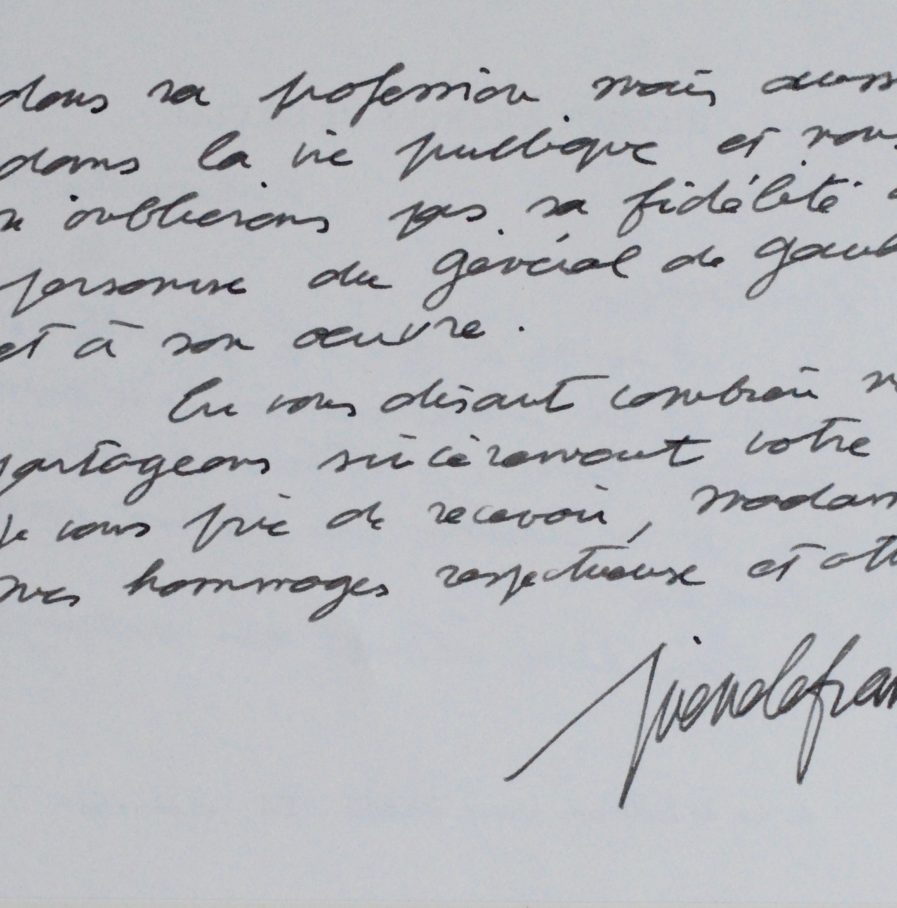 dans sa profession mais auss
dans la vie publique et nous
n'oublierons pas sa fidélité à
personne du Général de Gaull
et à son oeuvre.
En vous disant combien n
partageons sincèrement votre
je vous prie de recevoir, Madam
mes hommages respectueux et att